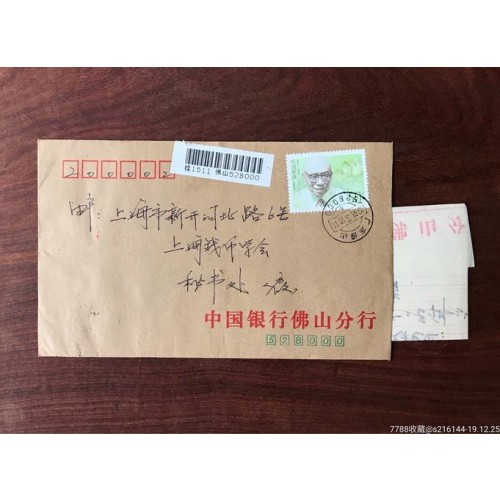 200002
挂1511 佛山528000
邮: 上海市新开河北路6号
上海钱币学会
秘书处 收
中国银行佛山分行
528000
7788收藏@s216144-19.12.25